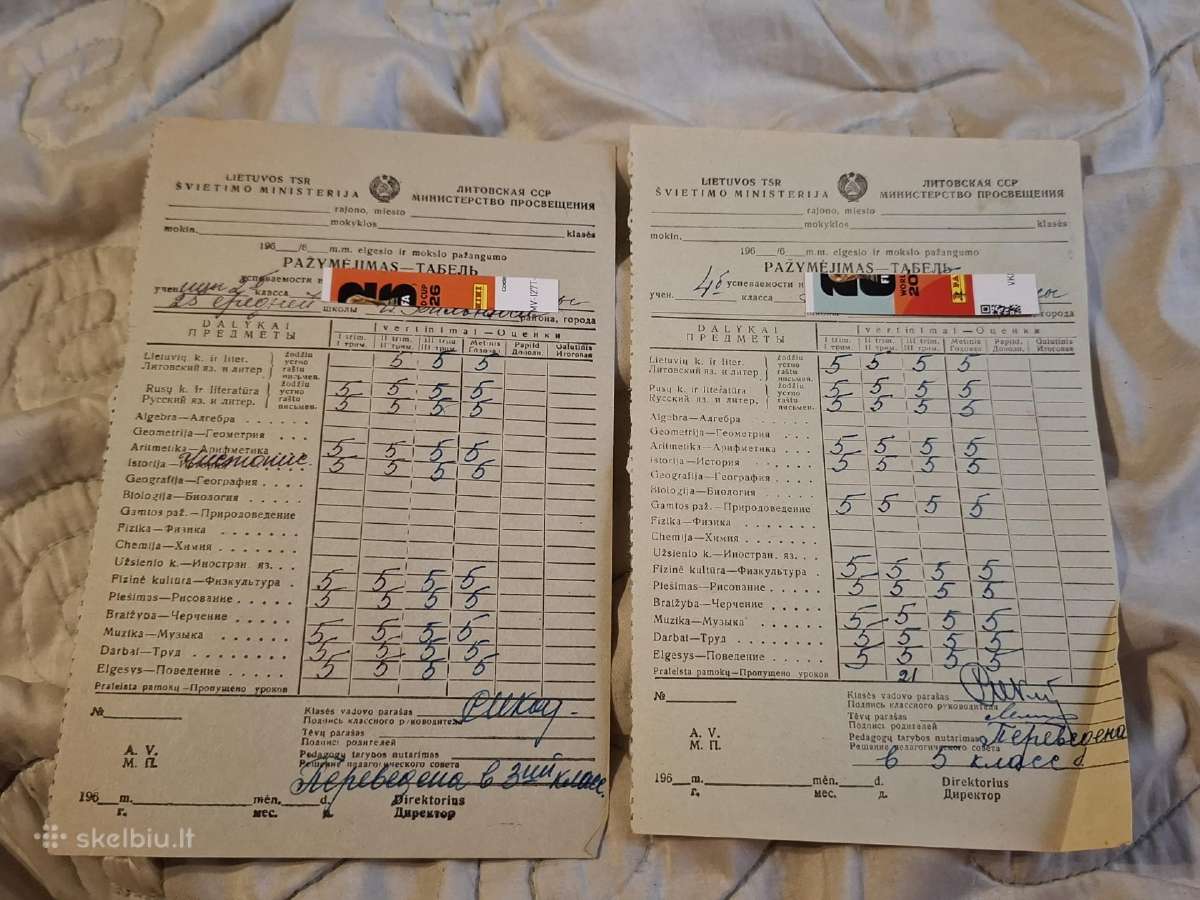 LIETUVOS TSR
ŠVIETIMO MINISTERIJA
ЛИТОВСКАЯ ССР
МИНИСТЕРСТВО ПРОСВЕЩЕНИЯ
rajono, miesto
mokyklos
mokin. klasės
196 /6 m.m. elgesio ir mokslo pažangumo
PAŽYMĖJIMAS—ТАБЕЛЬ
успеваемости
учен класса
25 средней школы района, города
FIFA
26
DALYKAI
ПРЕДМЕТЫ
Įvertinimai—Оценки
I trim. II trim. III trim. Metinis Papild. Galutinis
I трим. II трим. III трим. Годовая Дополн. Итоговая
Lietuvių k. ir liter. žodžiu 5 5 5
Литовский яз. и литер. устно
raštu
письмен.
Rusų k. ir literatūra žodžiu устно 5 5 5 5
Русский яз. и литер. raštu письмен. 5 5 5 5
Algebra—Алгебра
Geometrija—Геометрия
Aritmetika—Арифметика 5 5 5 5
Istorija— чистопис. 5 5 5 5
Geografija—География
Biologija—Биология
Gamtos paž.—Природоведение
Fizika—Физика
Chemija—Химия
Užsienio k.—Иностран. яз.
Fizinė kultūra—Физкультура 5 5 5 5
Piešimas—Рисование 5 5 5 5
Braižyba—Черчение
Muzika—Музыка 5 5 5 5
Darbai—Труд 5 5 5 5
Elgesys—Поведение 5 5 5 5
Praleista pamokų—Пропущено уроков
№
Klasės vadovo parašas
Подпись классного руководителя
Tėvų parašas
Подпись родителей
A. V.
М. П.
Pedagogų tarybos nutarimas
Решение педагогического совета
Переведена в 3ий класс.
196 m. mėn. d. Direktorius
г. мес. д. Директор
skelbiu.lt
LIETUVOS TSR
ŠVIETIMO MINISTERIJA
ЛИТОВСКАЯ ССР
МИНИСТЕРСТВО ПРОСВЕЩЕНИЯ
rajono, miesto
mokyklos
mokin. klasės
196 /6 m.m. elgesio ir mokslo pažangumo
PAŽYMĖJIMAS—ТАБЕЛЬ
4б успеваемости
учен. класса города
DALYKAI
ПРЕДМЕТЫ
Įvertinimai—Оценки
I trim. II trim. III trim. Metinis Papild. Galutinis
I трим. II трим. III трим. Годовая Дополн. Итоговая
Lietuvių k. ir liter. žodžiu 5 5 5 5
Литовский яз. и литер. устно
raštu
письмен.
Rusų k. ir literatūra žodžiu устно 5 5 5 5
Русский яз. и литер. raštu письмен. 5 5 5 5
Algebra—Алгебра
Geometrija—Геометрия
Aritmetika—Арифметика 5 5 5 5
Istorija—История 5 5 5 5
Geografija—География
Biologija—Биология
Gamtos paž.—Природоведение 5 5 5 5
Fizika—Физика
Chemija—Химия
Užsienio k.—Иностран. яз.
Fizinė kultūra—Физкультура 5 5 5 5
Piešimas—Рисование 5 5 5 5
Braižyba—Черчение
Muzika—Музыка 5 5 5 5
Darbai—Труд 5 5 5 5
Elgesys—Поведение 5 5 5 5
Praleista pamokų—Пропущено уроков 21
№
Klasės vadovo parašas
Подпись классного руководителя
Tėvų parašas
Подпись родителей
A. V.
М. П.
Pedagogų tarybos nutarimas
Решение педагогического совета
Переведена
в 5 класс
196 m. mėn. d. Direktorius
г. мес. д. Директор